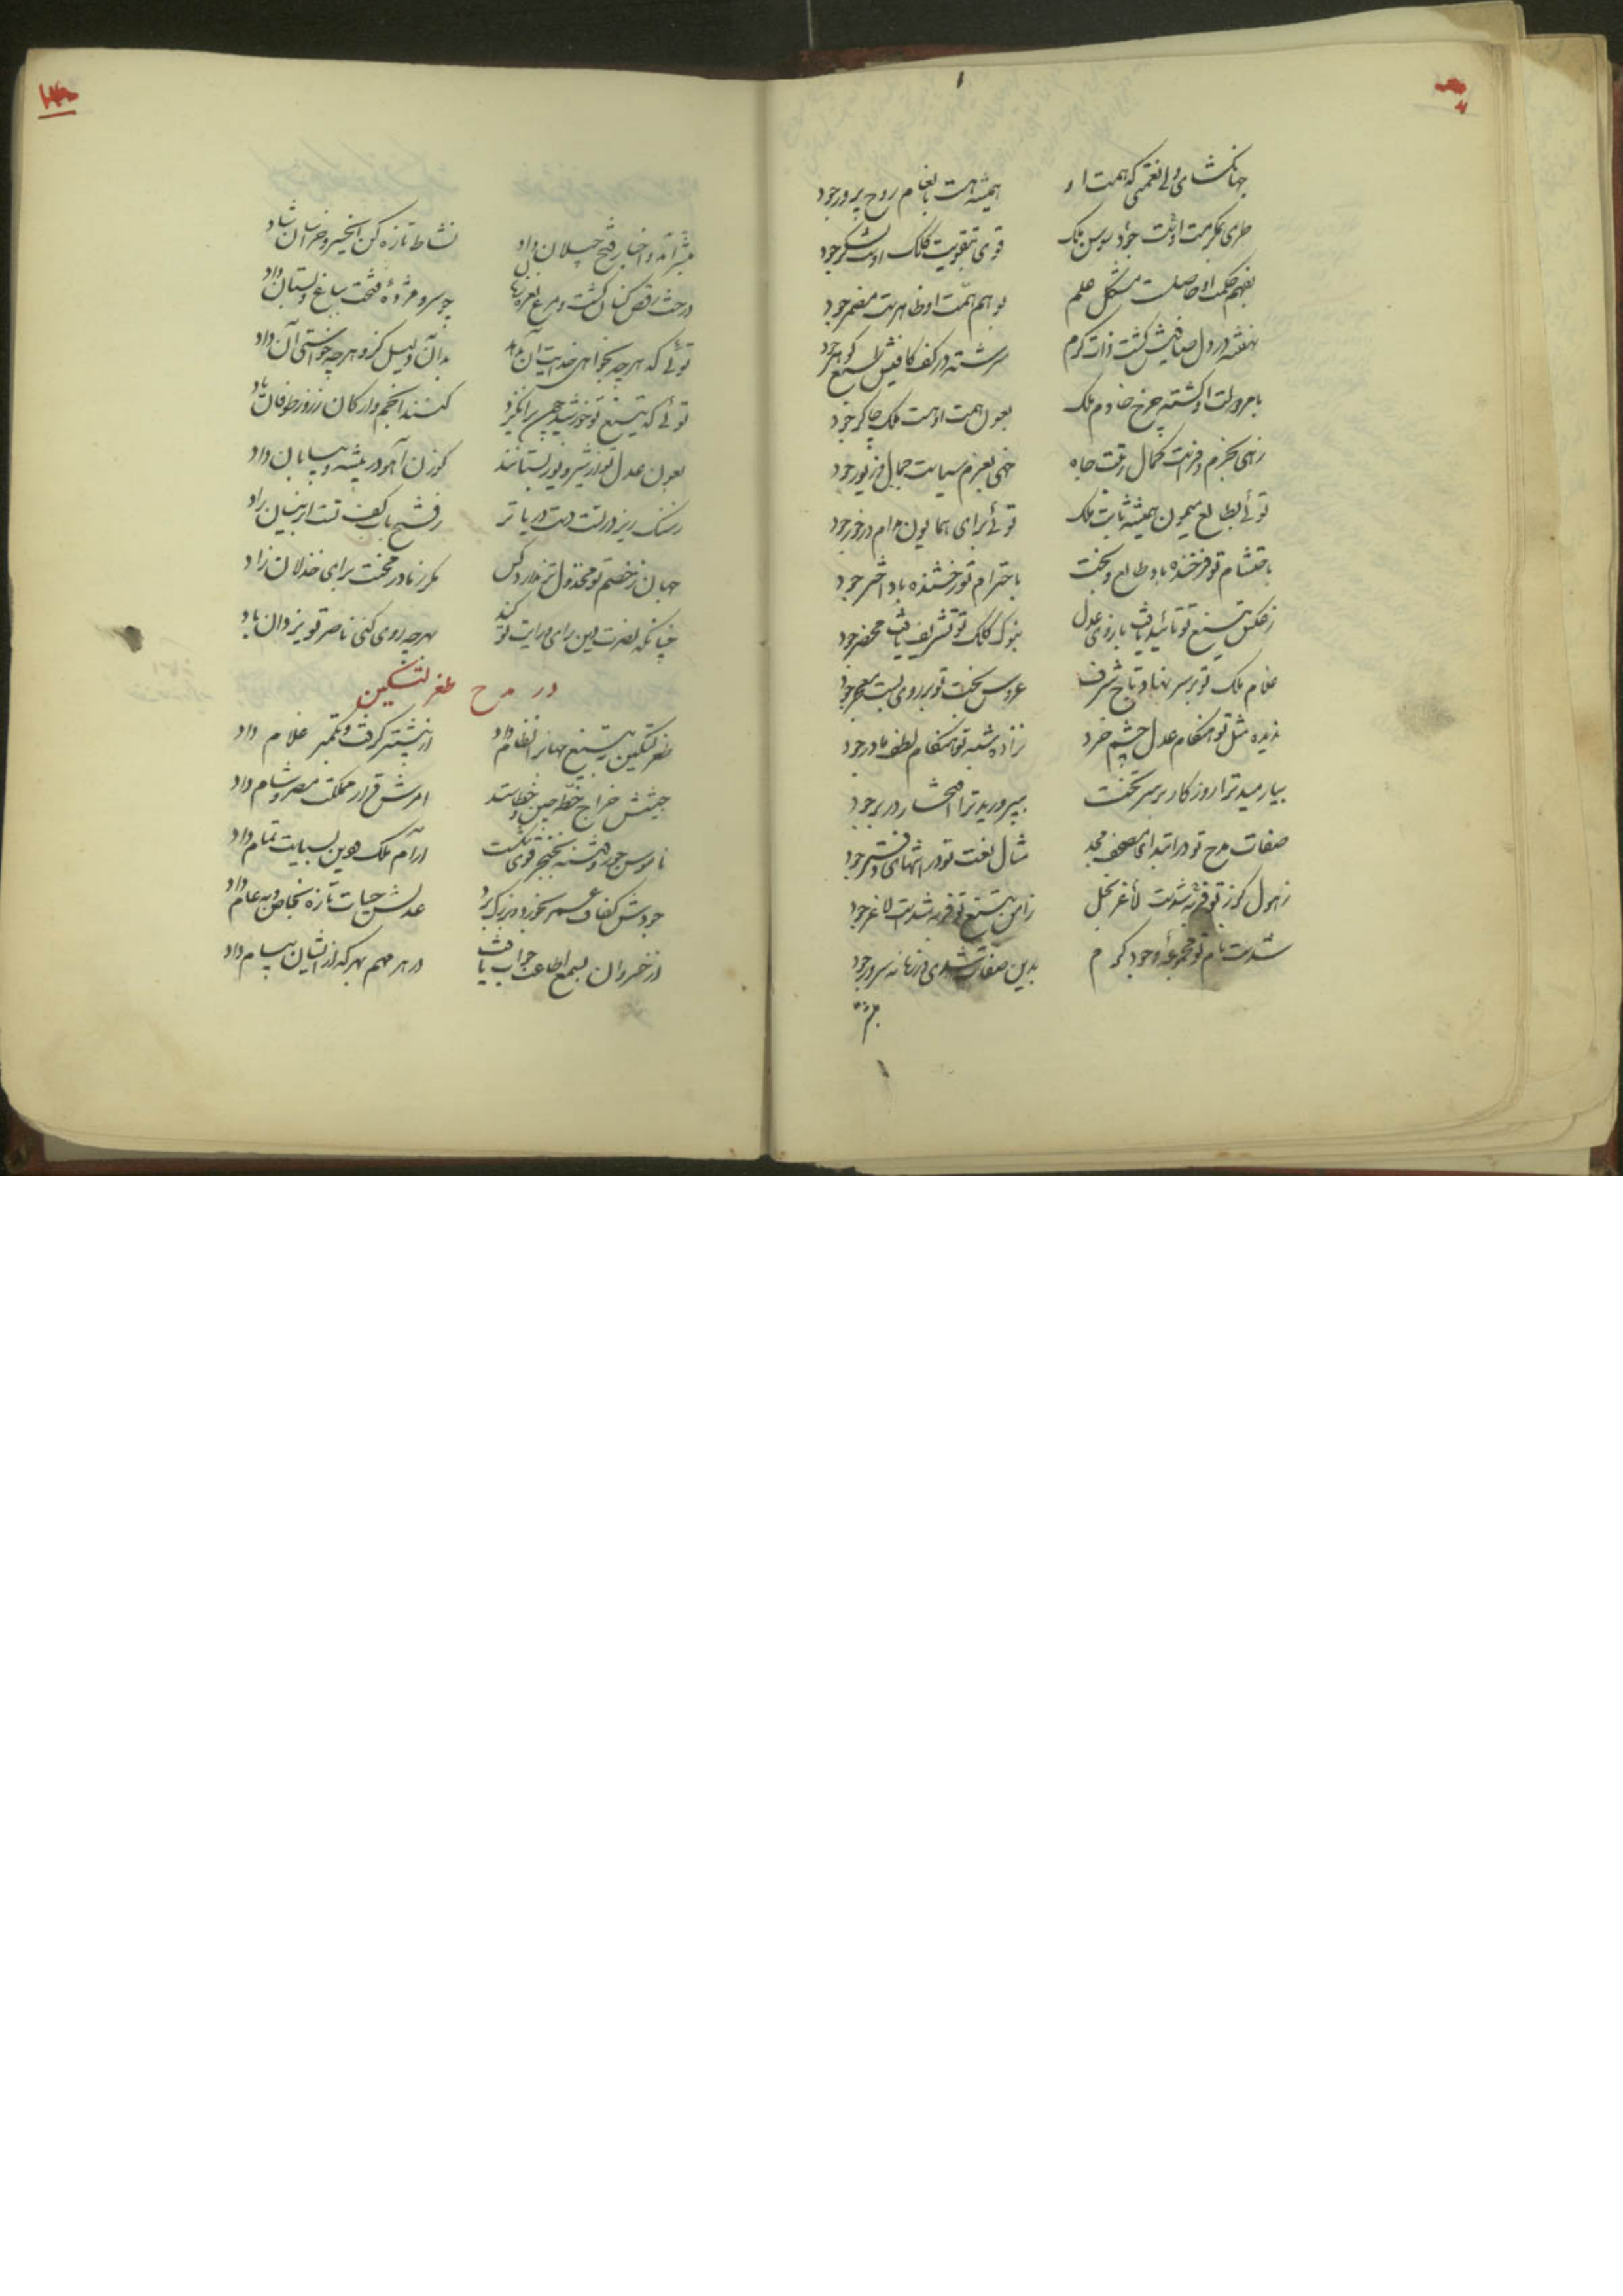 جهانگشای ولی نعمتی که همت او
همیشه هست بانعام روح پرور جود
طری بمکرمت اوست جود بوس ملک
قوی بتقویت کلک اوست لشکر جود
بفهم حکمت او حاصلست مشکل علم
بوهم همّت او ظاهرست مضمر جود
نهفته در دل صافیش گشت ذات کرم
سرشته در کف کافیش گوهر جود
بامر دولت او گشته چرخ خادم ملک
بعون همت او هست ملک چاکر جود
زهی بحزم و فرهنت کمال رفعت جاه
خهی بعزم سیاست جمال و زیور جود
توئی بطالع میمون همیشه ثابت ملک
توئی برای همایون مدام در خور جود
باحتشام تو فرخنده باد طالع و بخت
باحترام تو رخشنده باد اختر جود
تیغ تو تائید یافت بازوی عدل
بنوک کلک تو تشریف یافت محضر جود
غلام ملک تو بر سر نهاد تاج شرف
عروس بخت تو بر روی بست معجر جود
ندیده مثل تو هنگام عدل چشم خرد
نزاده شبه تو هنگام لطف مادر جود
بیارمید ترا روزگار بر سر تخت
بپرورید ترا افتخار در بر جود
صفات مدح تو در ابتدای مصحف مجد
مثال نعت تو در انتهای دفتر جود
ز هول گرز تو فربه شدست لاغر بخل
ز امن تیغ تو فربه شدست لاغر جود
شدست نام تو مجموعه وجود کرم
بدین صفات شدی در زمانه سرور جود
مبشر آمد و اخبار فتح چیلان داد
نشاط تازه کن ای خسرو خراسان شاد
درخت رقص کنان گشت و مرغ نعره زنان
چو سرو مژده فتحت بباغ و بستان داد
توئی که هر چه بخواهی خدایت آن بدهد
بدان دلیل کزو هر چه خواستی آن داد
توئی که تیغ تو خورشید
کنند انجم و ارکان
بعون عدل تو از شیر و یوز بستانند
گوزن آهو در بیشه و بیابان داد
جهان ز خصم تو مخذول تر ندارد کس
مگر ز مادر محنت برای خذلان زاد
چنانکه نصرت دین رای و رایت تو کند
بهر چه روی کنی ناصر تو یزدان باد
در مدح طغرلتکین
طغرلتکین بتیغ جهانرا نظام داد
جیشش خراج خطّه چین و خطا ستد
امرش قرار مملکت مصر و شام داد
ناموس جور و فتنه بخنجر قوی شکست
آرام ملک و دین بسیاست تمام داد
جودش کفاف عمر بخرد و بزرگ برد
عدلش حیات تازه بخاص و بعام داد
از خسروان بسمع اطاعت جواب یافت
در هر مهم بهر که از ایشان پیام داد